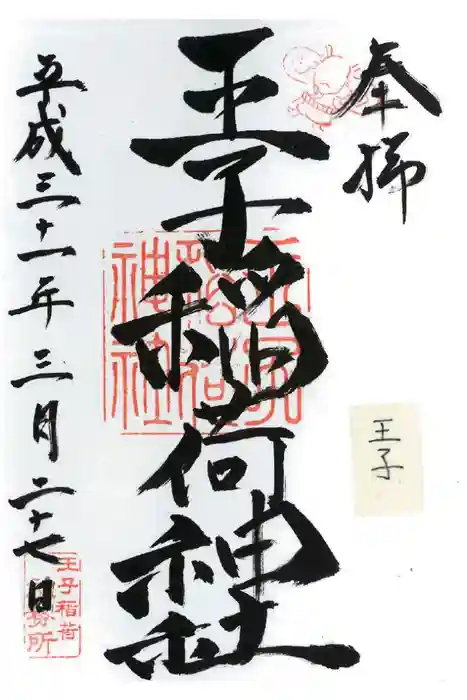 奉拝
王子
王子稲荷神社
王子稲荷神社
平成三十一年三月二十七日
王子稲荷
務所